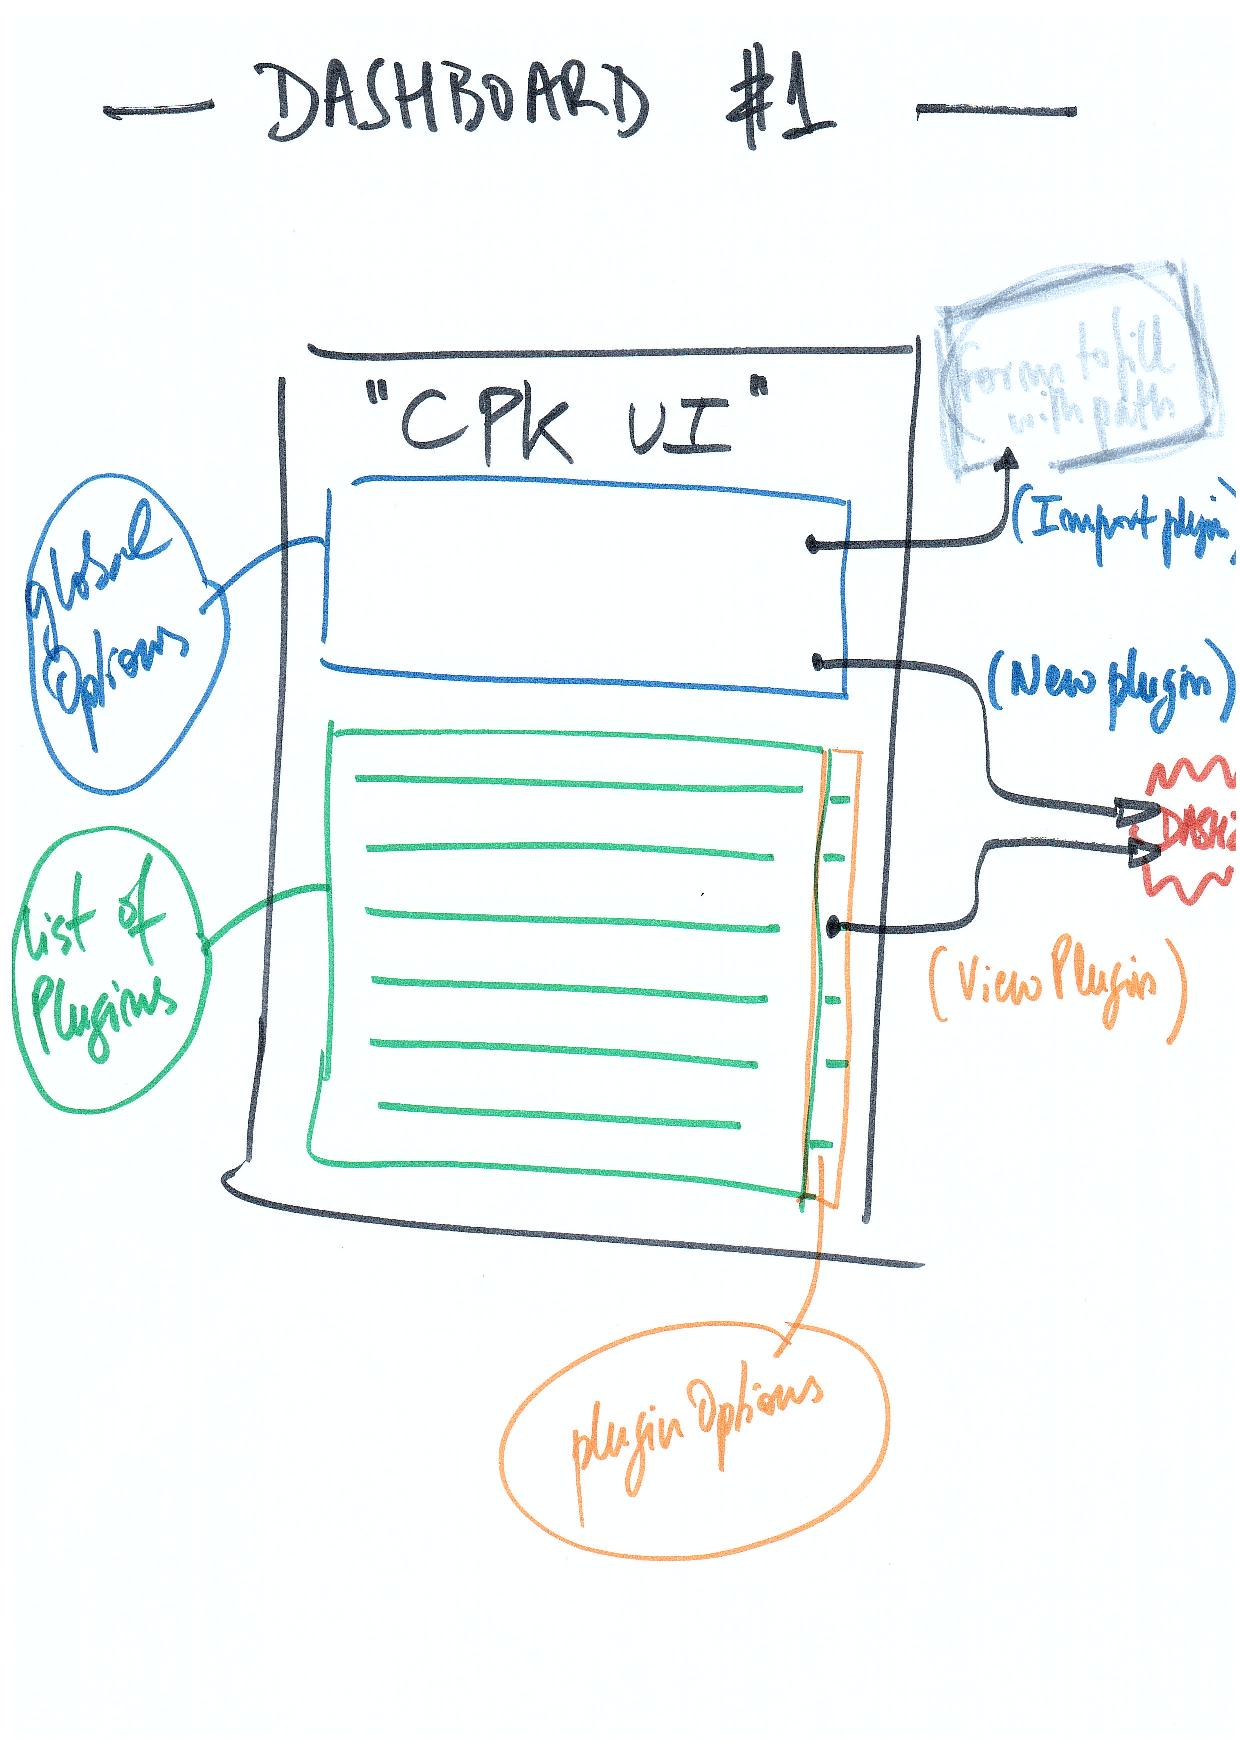 — DASHBOARD #1 —
"CPK UI"
form to fill
with path
(Import plugin)
global
Options
(New plugin)
DASH2
list of
Plugins
(View Plugin)
plugin Options